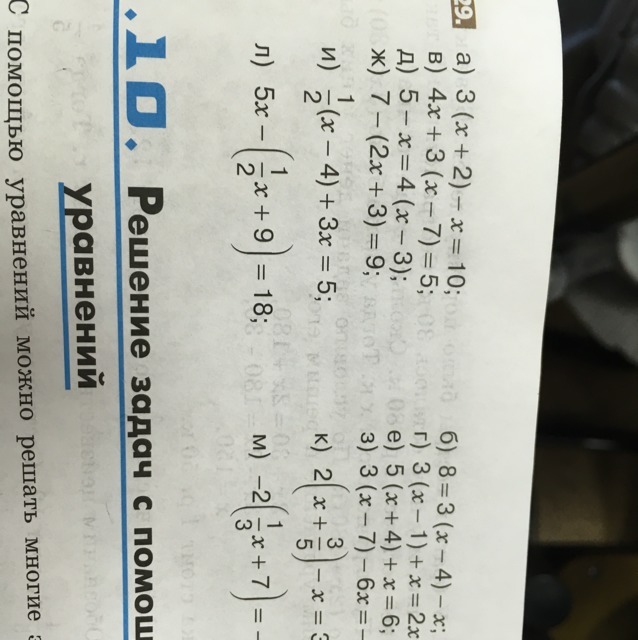 29. а) 3 (x + 2) − x = 10; б) 8 = 3 (x − 4) − x;
в) 4x + 3 (x − 7) = 5; г) 3 (x − 1) + x = 2x
д) 5 − x = 4 (x − 3); е) 5 (x + 4) + x = 6;
ж) 7 − (2x + 3) = 9; з) 3 (x − 7) − 6x = −
и) 1/2 (x − 4) + 3x = 5; к) 2(x + 3/5) − x = 3
л) 5x − (1/2 x + 9) = 18; м) −2(1/3 x + 7) = −
.10. Решение задач с помощ
уравнений
С помощью уравнений можно решать многие